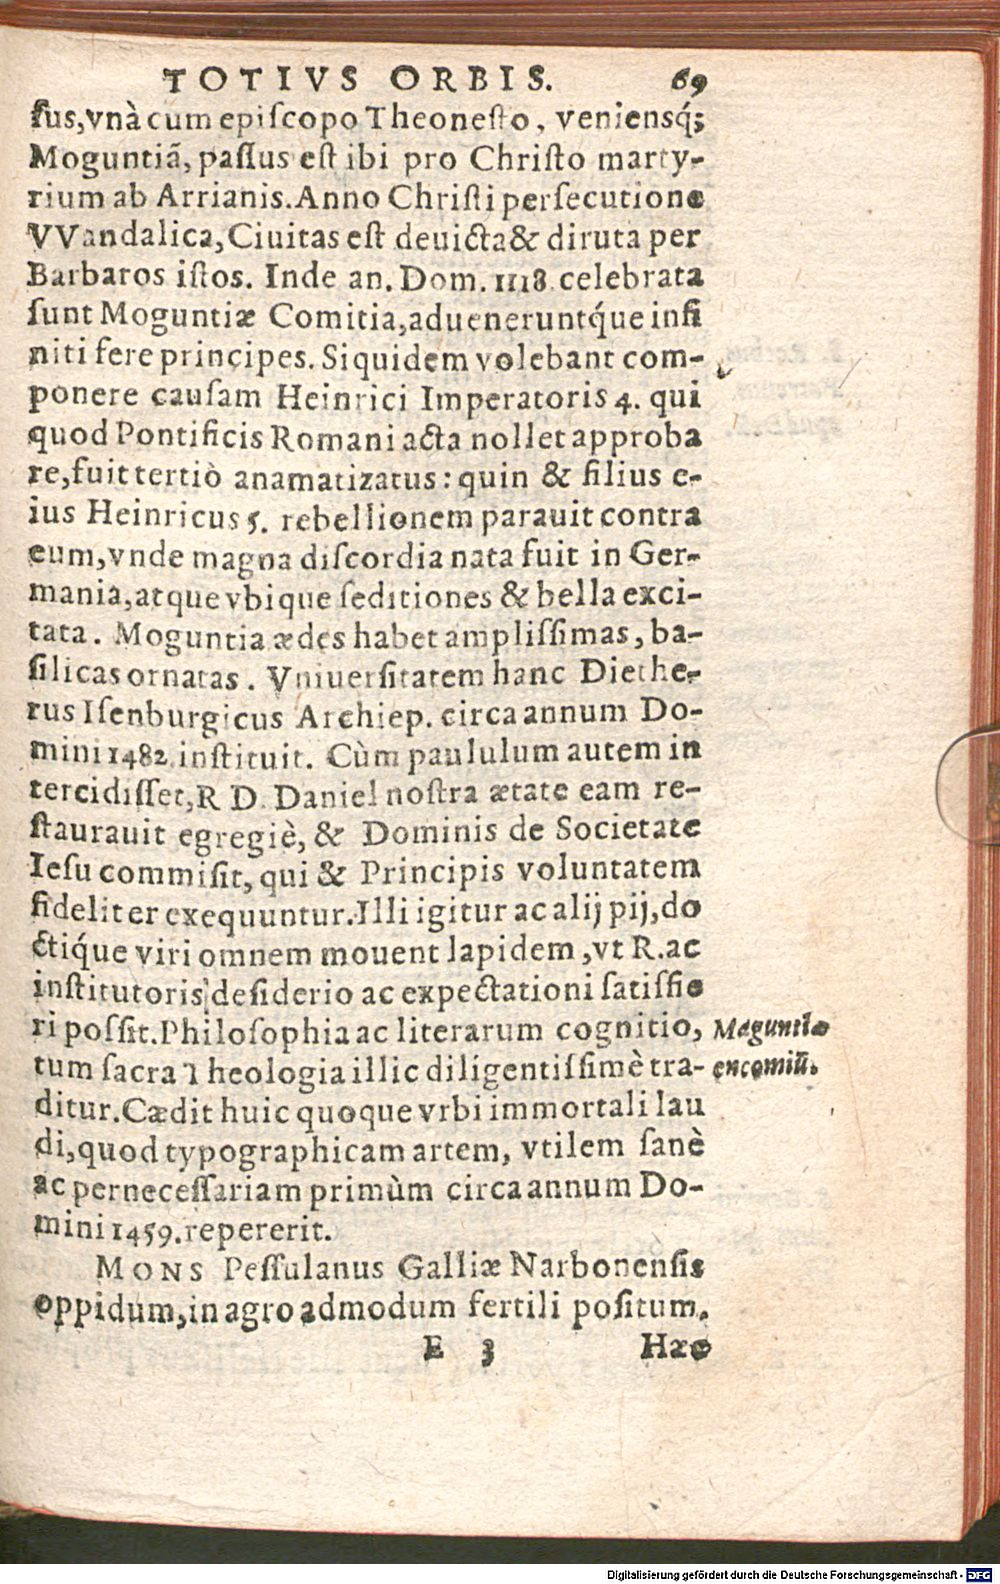 TOTIVS ORBIS. 69
ſus, vnà cum epiſcopo Theoneſto, veniensq́;
Moguntiã, paſſus eſt ibi pro Chriſto marty-
rium ab Arrianis. Anno Chriſti perſecutione
VVandalica, Ciuitas eſt deuicta & diruta per
Barbaros iſtos. Inde an. Dom. 1118 celebrata
ſunt Moguntiæ Comitia, adueneruntq́ue infi
niti fere principes. Siquidem volebant com-
ponere cauſam Heinrici Imperatoris 4. qui
quod Pontificis Romani acta nollet approba
re, fuit tertiò anamatizatus: quin & filius e-
ius Heinricus 5. rebellionem parauit contra
eum, vnde magna diſcordia nata fuit in Ger-
mania, atque vbique ſeditiones & bella exci-
tata. Moguntia ædes habet ampliſſimas, ba-
ſilicas ornatas. Vniuerſitatem hanc Diethe-
rus Iſenburgicus Archiep. circa annum Do-
mini 1482 inſtituit. Cùm paululum autem in
tercidiſſet, R D. Daniel noſtra ætate eam re-
ſtaurauit egregiè, & Dominis de Societate
Ieſu commiſit, qui & Principis voluntatem
fideliter exequuntur. Illi igitur ac alij pij, do
ctiq́ue viri omnem mouent lapidem, vt R. ac
inſtitutoris deſiderio ac expectationi ſatisfie
ri poſſit. Philoſophia ac literarum cognitio,
tum ſacra Theologia illic diligentiſſimè tra-
ditur. Cædit huic quoque vrbi immortali lau
di, quod typographicam artem, vtilem ſanè
ac perneceſſariam primùm circa annum Do-
mini 1459. repererit.
Maguntiæ
encomiũ.
MONS Peſſulanus Galliæ Narbonenſis
oppidum, in agro admodum fertili poſitum.
E 3 Hæc
Digitalisierung gefördert durch die Deutsche Forschungsgemeinschaft - DFG